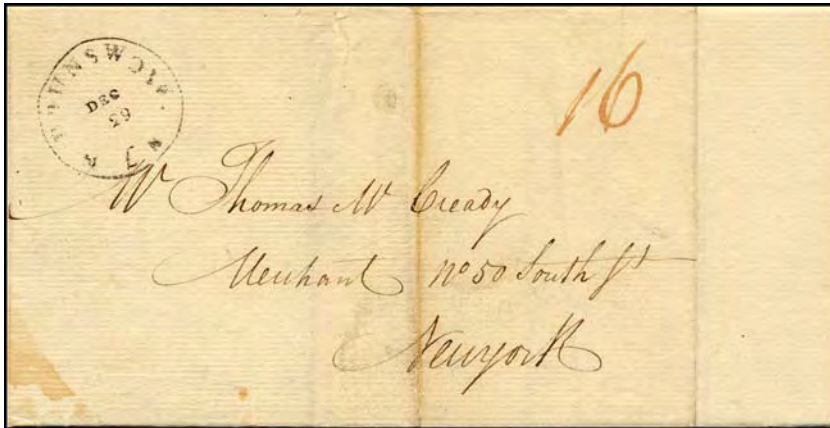 BRUNSWICK. N J
DEC
29
16
Mr Thomas Mc Cready
Merchant No 50 South St
Newyork